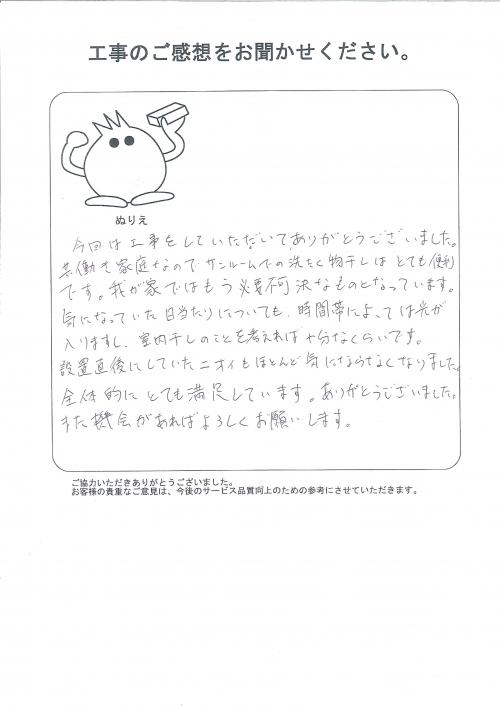 工事のご感想をお聞かせください。
ぬりえ
今回は工事をしていただいてありがとうございました。
共働き家庭なので、サンルームでの洗たく物干しはとても便利
です。我が家ではもう必要不可決なものとなっています。
気になっていた日当たりについても、時間帯によっては光が
入りますし、室内干しのことを考えれば十分なくらいです。
設置直後にしていたニオイもほとんど気にならなくなりました。
全体的にとても満足しています。ありがとうございました。
また機会があればよろしくお願いします。
ご協力いただきありがとうございました。
お客様の貴重なご意見は、今後のサービス品質向上のための参考にさせていただきます。